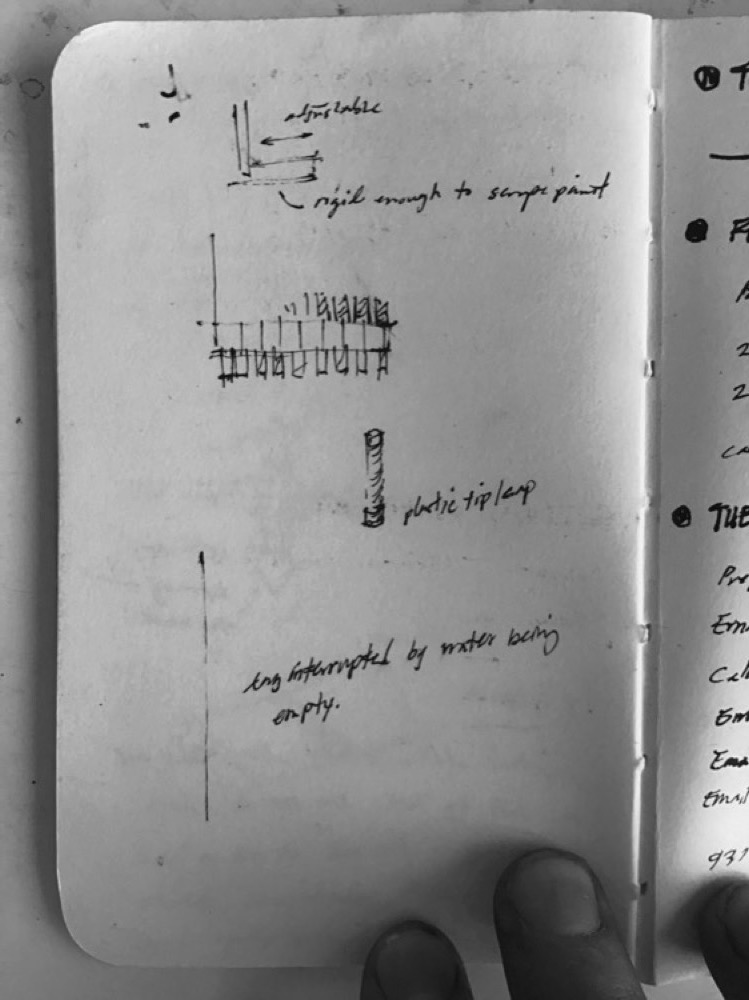 adjustable
rigid enough to scrape paint
plastic tip/cap
interrupted by water being
empty.
T
F
2
2
Ca
TUE
Pro
Ema
Cal
Em
Ema
Email
931